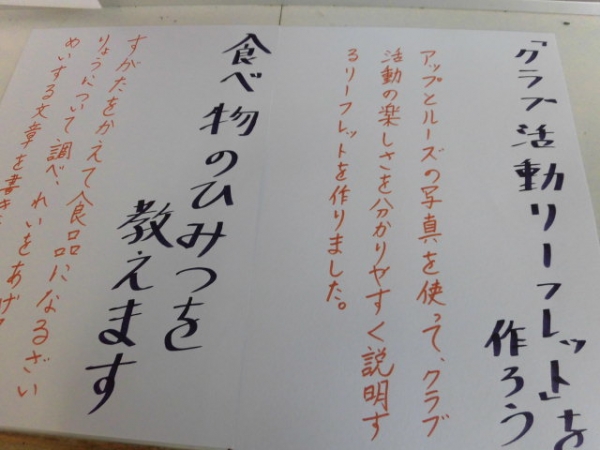 『クラブ活動リーフレット』を
作ろう
アップとルーズの写真を使って、クラブ
活動の楽しさを分かりやすく説明す
るリーフレットを作りました。
食べ物のひみつを
教えます
すがたをかえて食品になるざい
りょうについて調べ、れいをあげ
めいする文章を書き